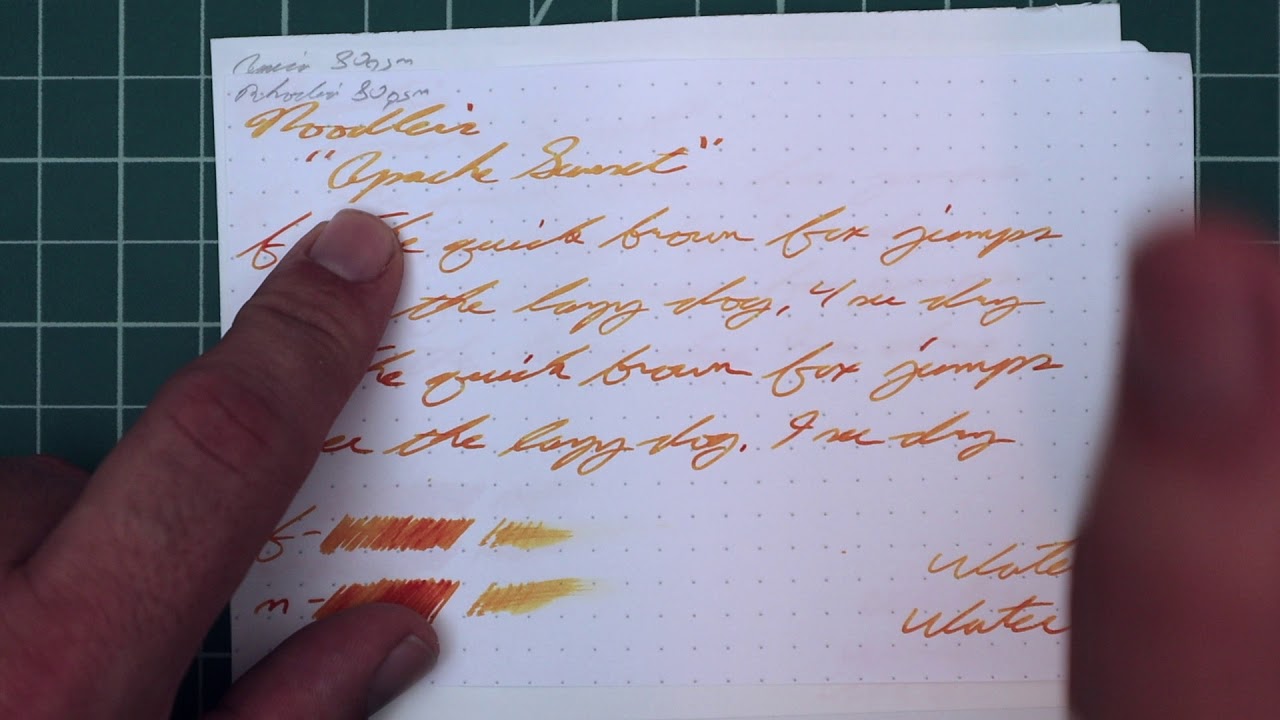 80gsm
Rhodia 80gsm
Noodler's
"Apache Sunset"
f the quick brown fox jumps
the lazy dog, 4 sec dry
the quick brown fox jumps
the lazy dog. 9 sec dry
f-
m-
Wate
Water